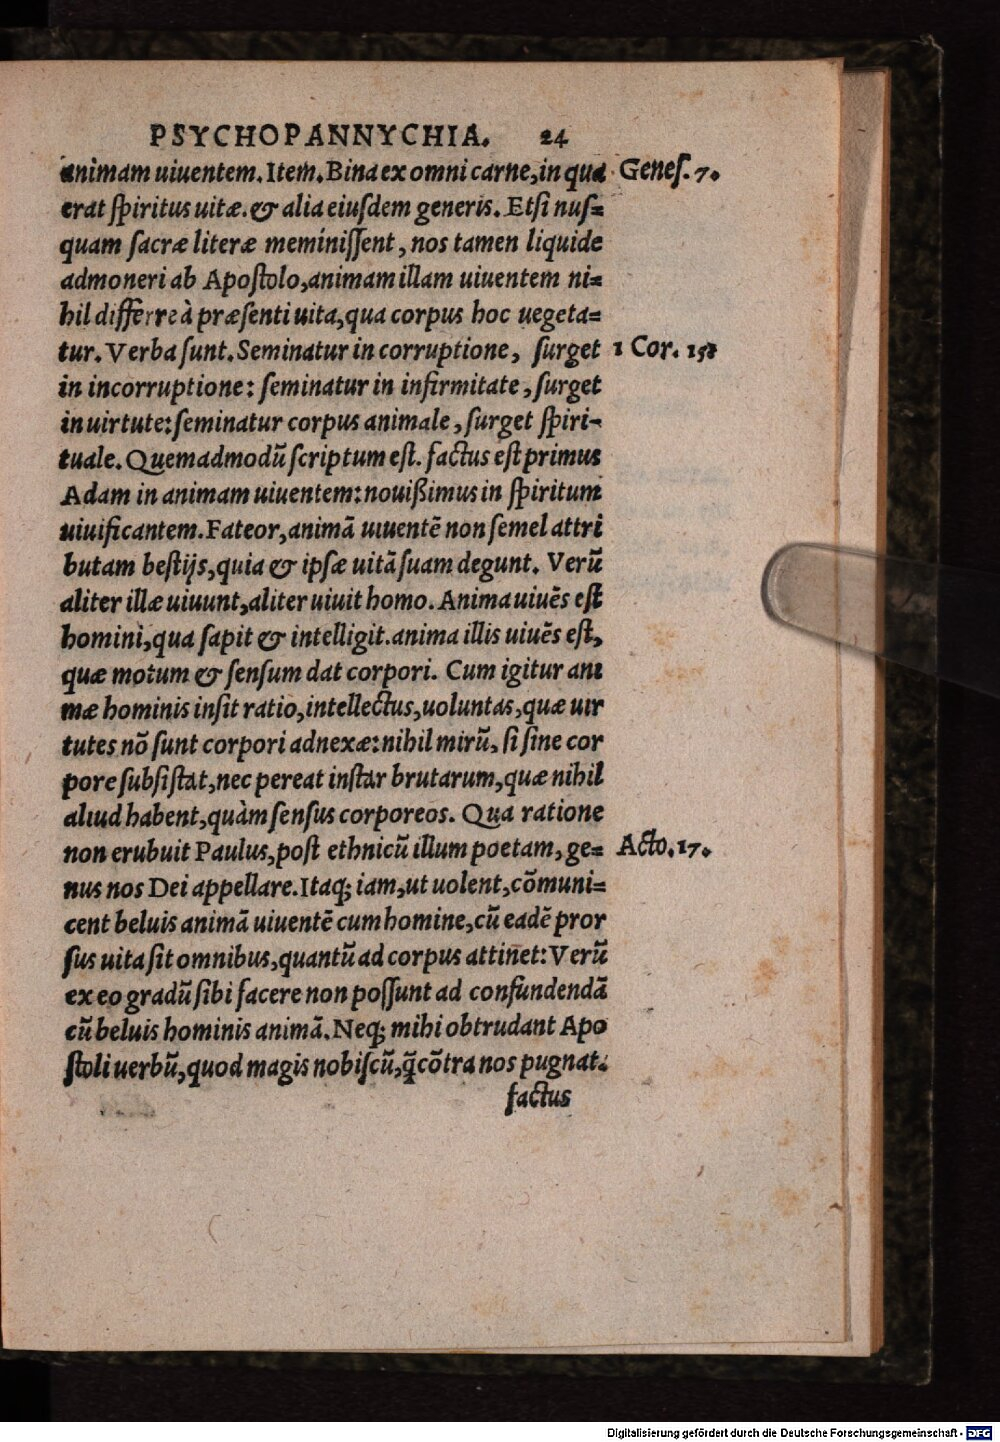 PSYCHOPANNYCHIA. 24
animam uiuentem. Item. Bina ex omni carne, in qua Genes. 7.
erat spiritus uitæ. & alia eiusdem generis. Etsi nus=
quam sacræ literæ meminissent, nos tamen liquide
admoneri ab Apostolo, animam illam uiuentem ni=
hil differre à præsenti uita, qua corpus hoc uegeta=
tur. Verba sunt. Seminatur in corruptione, surget 1 Cor. 15
in incorruptione: seminatur in infirmitate, surget
in uirtute: seminatur corpus animale, surget spiri-
tuale. Quemadmodũ scriptum est. factus est primus
Adam in animam uiuentem: nouißimus in spiritum
uiuificantem. Fateor, animã uiuentẽ non semel attri
butam bestijs, quia & ipsæ uitã suam degunt. Verũ
aliter illæ uiuunt, aliter uiuit homo. Anima uiuẽs est
homini, qua sapit & intelligit. anima illis uiuẽs est,
quæ motum & sensum dat corpori. Cum igitur ani
mæ hominis insit ratio, intellectus, uoluntas, quæ uir
tutes nõ sunt corpori adnexæ: nihil mirũ, si sine cor
pore subsistat, nec pereat instar brutarum, quæ nihil
aliud habent, quàm sensus corporeos. Qua ratione
non erubuit Paulus, post ethnicũ illum poetam, ge= Acto. 17.
nus nos Dei appellare. Itaq; iam, ut uolent, cõmuni=
cent beluis animã uiuentẽ cum homine, cũ eadẽ pror
sus uita sit omnibus, quantũ ad corpus attinet: Verũ
ex eo gradũ sibi facere non possunt ad confundendã
cũ beluis hominis animã. Neq; mihi obtrudant Apo
stoli uerbũ, quod magis nobiscũ, q̃ cõtra nos pugnat.
factus
Digitalisierung gefördert durch die Deutsche Forschungsgemeinschaft - DFG